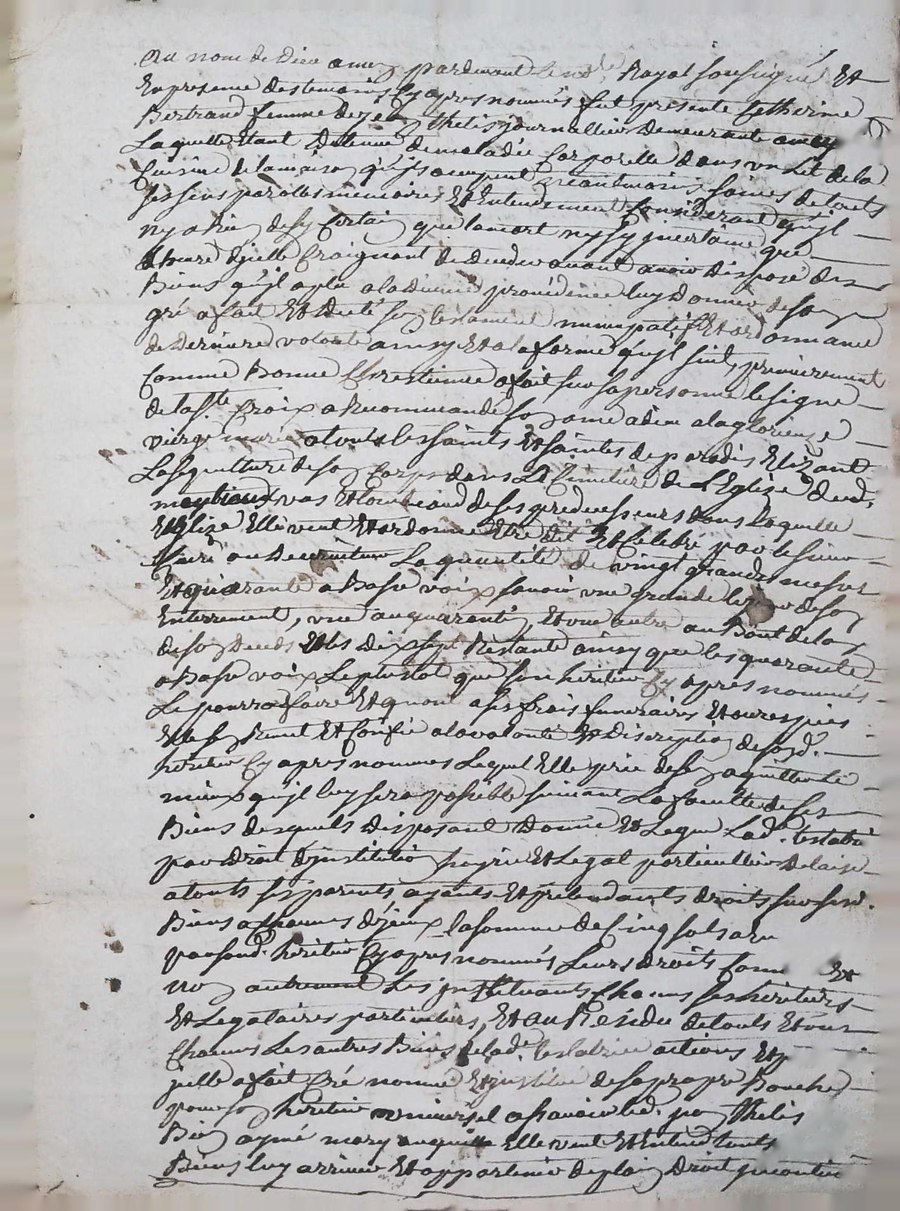 Au nom de Dieu amen pardevant le no.re Royal soussigné Et
En presence des temoins cy apres nommés fut presente Catherine
Bertrand femme de jean thelis journallier demeurante
Laquelle étant Detenue de maladie Corporelle dans un Lit de la
Cuisine de la maison qu'ils occupent neantmoins saine de touts
ses sens parolles memoires Et Entendement Considerant qu'jl
ny a Rien de sy Certain que la mort ny sy jncertaine que
Lheure djcelle Craignant de deceder avant avoir Disposé des
Biens qu'jl a plu a la divine providence luy Donner de son
gré a fait Et Dicté son testament nuncupatif Et ordonnance
de Derniere volonté ainsy Et a la forme qu'jl suit, premierement
Comme Bonne Chrestienne a fait sur sa personne le signe
de la S.te Croix a Recommandé son ame a dieu a la glorieuse
vierge marie a touts les saints Et saintes de paradis Elizant
La sepulture de son Corps dans Le Cimetiere de L'Eglise dud.
vas Et tombeau de ses predecesseurs dans Laquelle
Eglize Elle veut Et ordonne Etre dit Et Celebré par le sieur
Curé ou Deserviteur La quantité de vingt grandes messes
Et quarante a Basse voix sçavoir une grande le jour de son
Enterrement, une au quarantin, Et une autre au Bout de lan
de son Deces Et les Dix sept Restante ainsy que les quarante
a Basse voix Le plustot que son heritier Cy apres nommés
Le pourra faire Et quant a ses frais funeraires Et œuvres pies
Elle sen Remet Et Confie a la volonté Et Discretion de sond.
heritier Cy apres nommes Lequel Elle prie de sen aquitter le
mieux qu'jl luy sera possible suivant La faculté de ses
Biens desquels disposant Donne Et Legue Lad. testatrice
par Droit djnstitution hayrie Et Legat particullier delaisse
a touts ses parents ayants Et pretendants droits sur sesd.
Biens a Chacuns d'jeux la somme de Cinq sols
par sond. heritier Cy apres nommés Leurs droits Et
non autrement Les jnstituants Chacuns ses heritiers
Et Legataires particuliers, Et au Residu de touts Et uns
Chacuns Les autres Biens de lad.e testatrice actions Et
jcelle a fait Créé nommé Et jnstitué de sa propre Bouche
pour son heritier universel a sçavoir led. jean thelis
Bien aymé mary auquel Elle veut Et Entend touts
Biens luy arriver Et appartenir de plain Droit